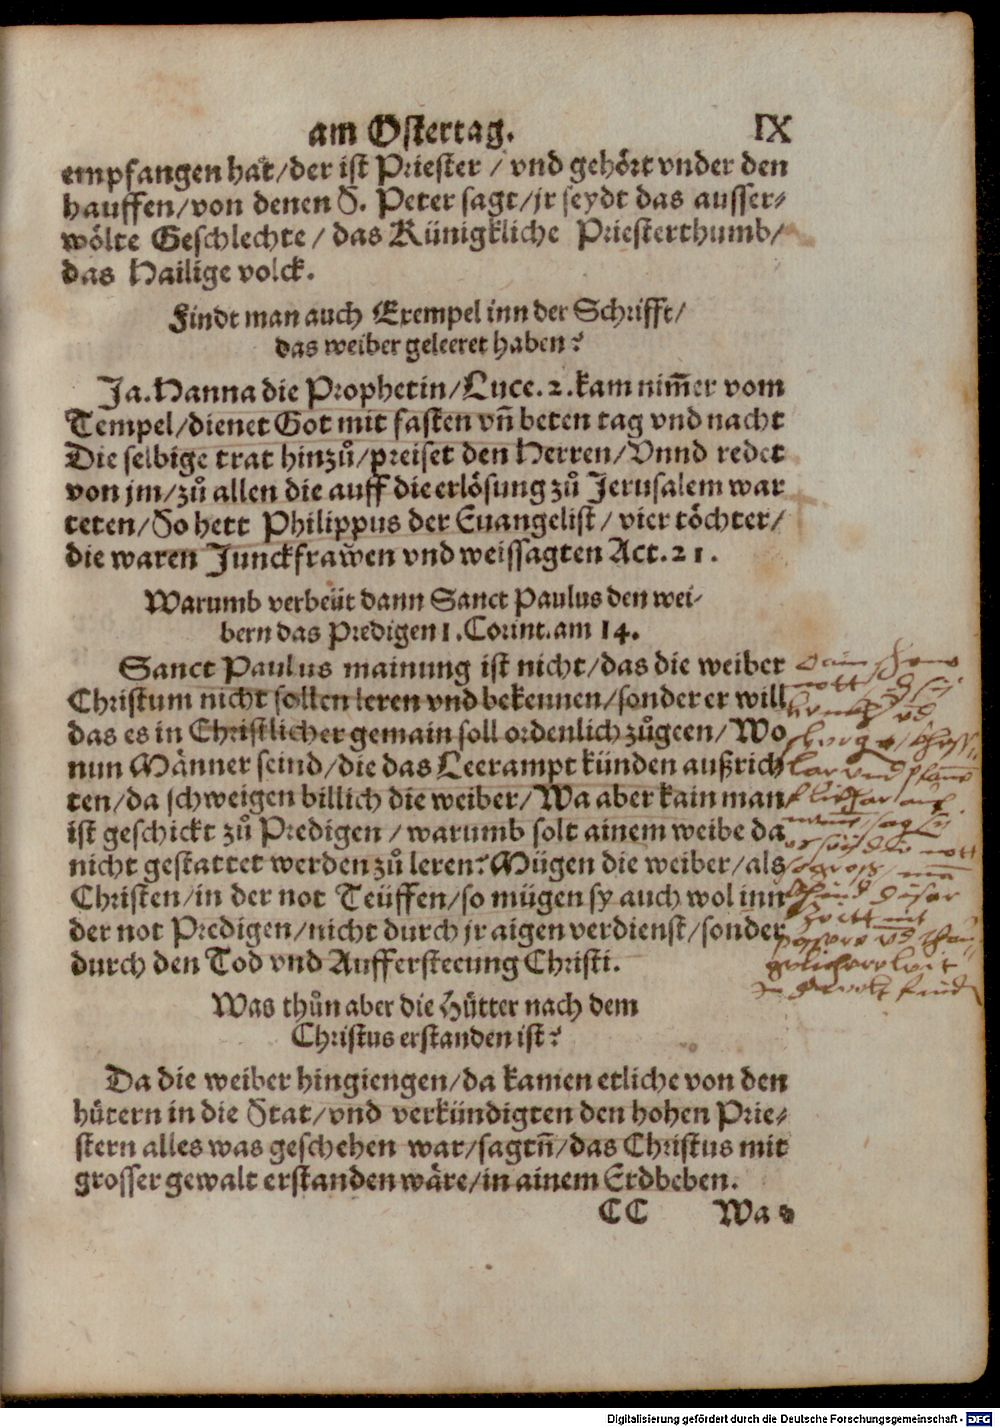 am Ostertag. IX
empfangen hat/der ist Priester / vnd gehört vnder den
hauffen/von denen S. Peter sagt/jr seydt das ausser⸗
wölte Geschlechte / das Künigkliche Priesterthumb/
das Hailige volck.
Findt man auch Exempel inn der Schrifft/
das weiber geleeret haben?
Ja. Hanna die Prophetin/Luce. 2. kam nim̃er vom
Tempel/dienet Got mit fasten vñ beten tag vnd nacht
Die selbige trat hinzů/preiset den Herren/Vnnd redet
von jm/zů allen die auff die erlösung zů Jerusalem war
teten/So hett Philippus der Euangelist / vier töchter/
die waren Junckfrawen vnd weissagten Act. 21.
Warumb verbeüt dann Sanct Paulus den wei⸗
bern das Predigen 1. Corint. am 14.
Sanct Paulus mainung ist nicht/das die weiber
Christum nicht sollen leren vnd bekennen/sonder er will
das es in Christlicher gemain soll ordenlich zůgeen/Wo
nun Männer seind/die das Leerampt künden außrich
ten/da schweigen billich die weiber/Wa aber kain man
ist geschickt zů Predigen / warumb solt ainem weibe da
nicht gestattet werden zů leren? Mügen die weiber/als
Christen/in der not Teüffen/so mügen sy auch wol inn
der not Predigen/nicht durch jr aigen verdienst/sonder
durch den Tod vnd Auffersteeung Christi.
Was thůn aber die Hütter nach dem
Christus erstanden ist?
Da die weiber hingiengen/da kamen etliche von den
hütern in die Stat/vnd verkündigten den hohen Prie⸗
stern alles was geschehen war/sagtñ/das Christus mit
grosser gewalt erstanden wäre/in ainem Erdbeben.
CC Wa⸗
Digitalisierung gefördert durch die Deutsche Forschungsgemeinschaft - DFG